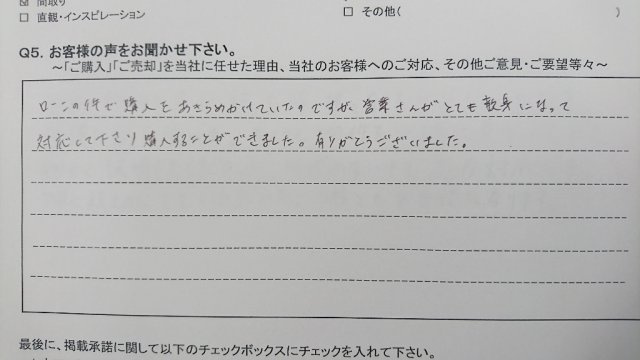 間取り
□ 直観・インスピレーション
□ その他(　　　)
Q5. お客様の声をお聞かせ下さい。
～「ご購入」「ご売却」を当社に任せた理由、当社のお客様へのご対応、その他ご意見・ご要望等々～
ローンの件で購入をあきらめかけていたのですが、営業さんがとても親身になって
対応して下さり購入することができました。有りがとうございました。
最後に、掲載承諾に関して以下のチェックボックスにチェックを入れて下さい。